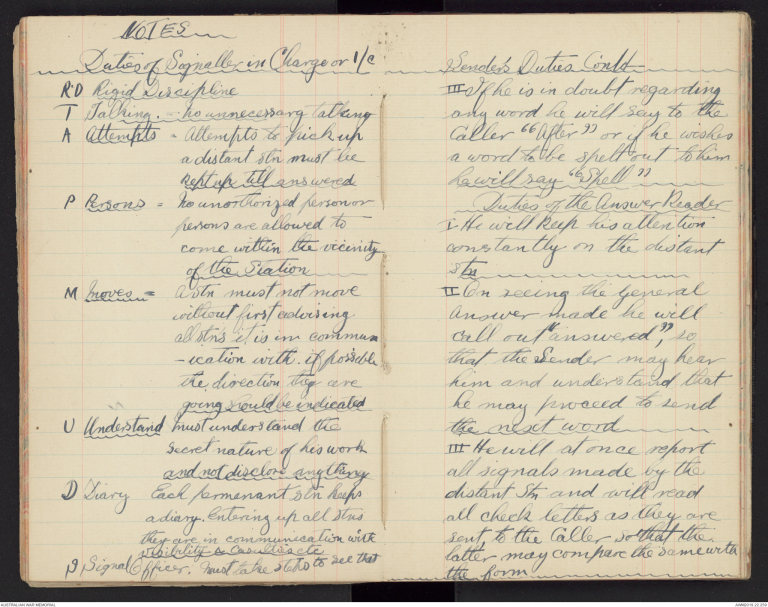 NOTES
Duties of Signaller in Charge or I/C
R.D Rigid Discipline
T Talking. - no unnecessary talking
A Attempts = Attempts to pick up
a distant stn must be
kept up till answered
P Persons = No unorthorized person or
persons are allowed to
come within the vicinity
of the Station
M Moves = A stn must not move
without first advising
all stns it is in commun
-ication with. if possible
the direction they are
going should be indicated
U Understand must understand the
secret nature of his work
and not disclose anything
D Diary Each permenant stn keeps
a diary. Entering up all stns
they are in communication with
visibility & casualties etc
Signal Officer. Must take steps to see that
Sender's Duties Contd
III If he is in doubt regarding
any word he will say to the
Caller "After" or if he wishes
a word to be spelt out to him
he will say "Spell"
Duties of the Answer Reader
I He will keep his attention
constantly on the distant
stn
II On seeing the General
answer made he will
call out "answered", so
that the Sender may hear
him and understand that
he may proceed to send
the next word
III He will at once report
all signals made by the
distant stn and will read
all check letters as they are
sent to the Caller so that the
latter may compare the same with
the form
AUSTRALIAN WAR MEMORIAL
AWM2019.22.259